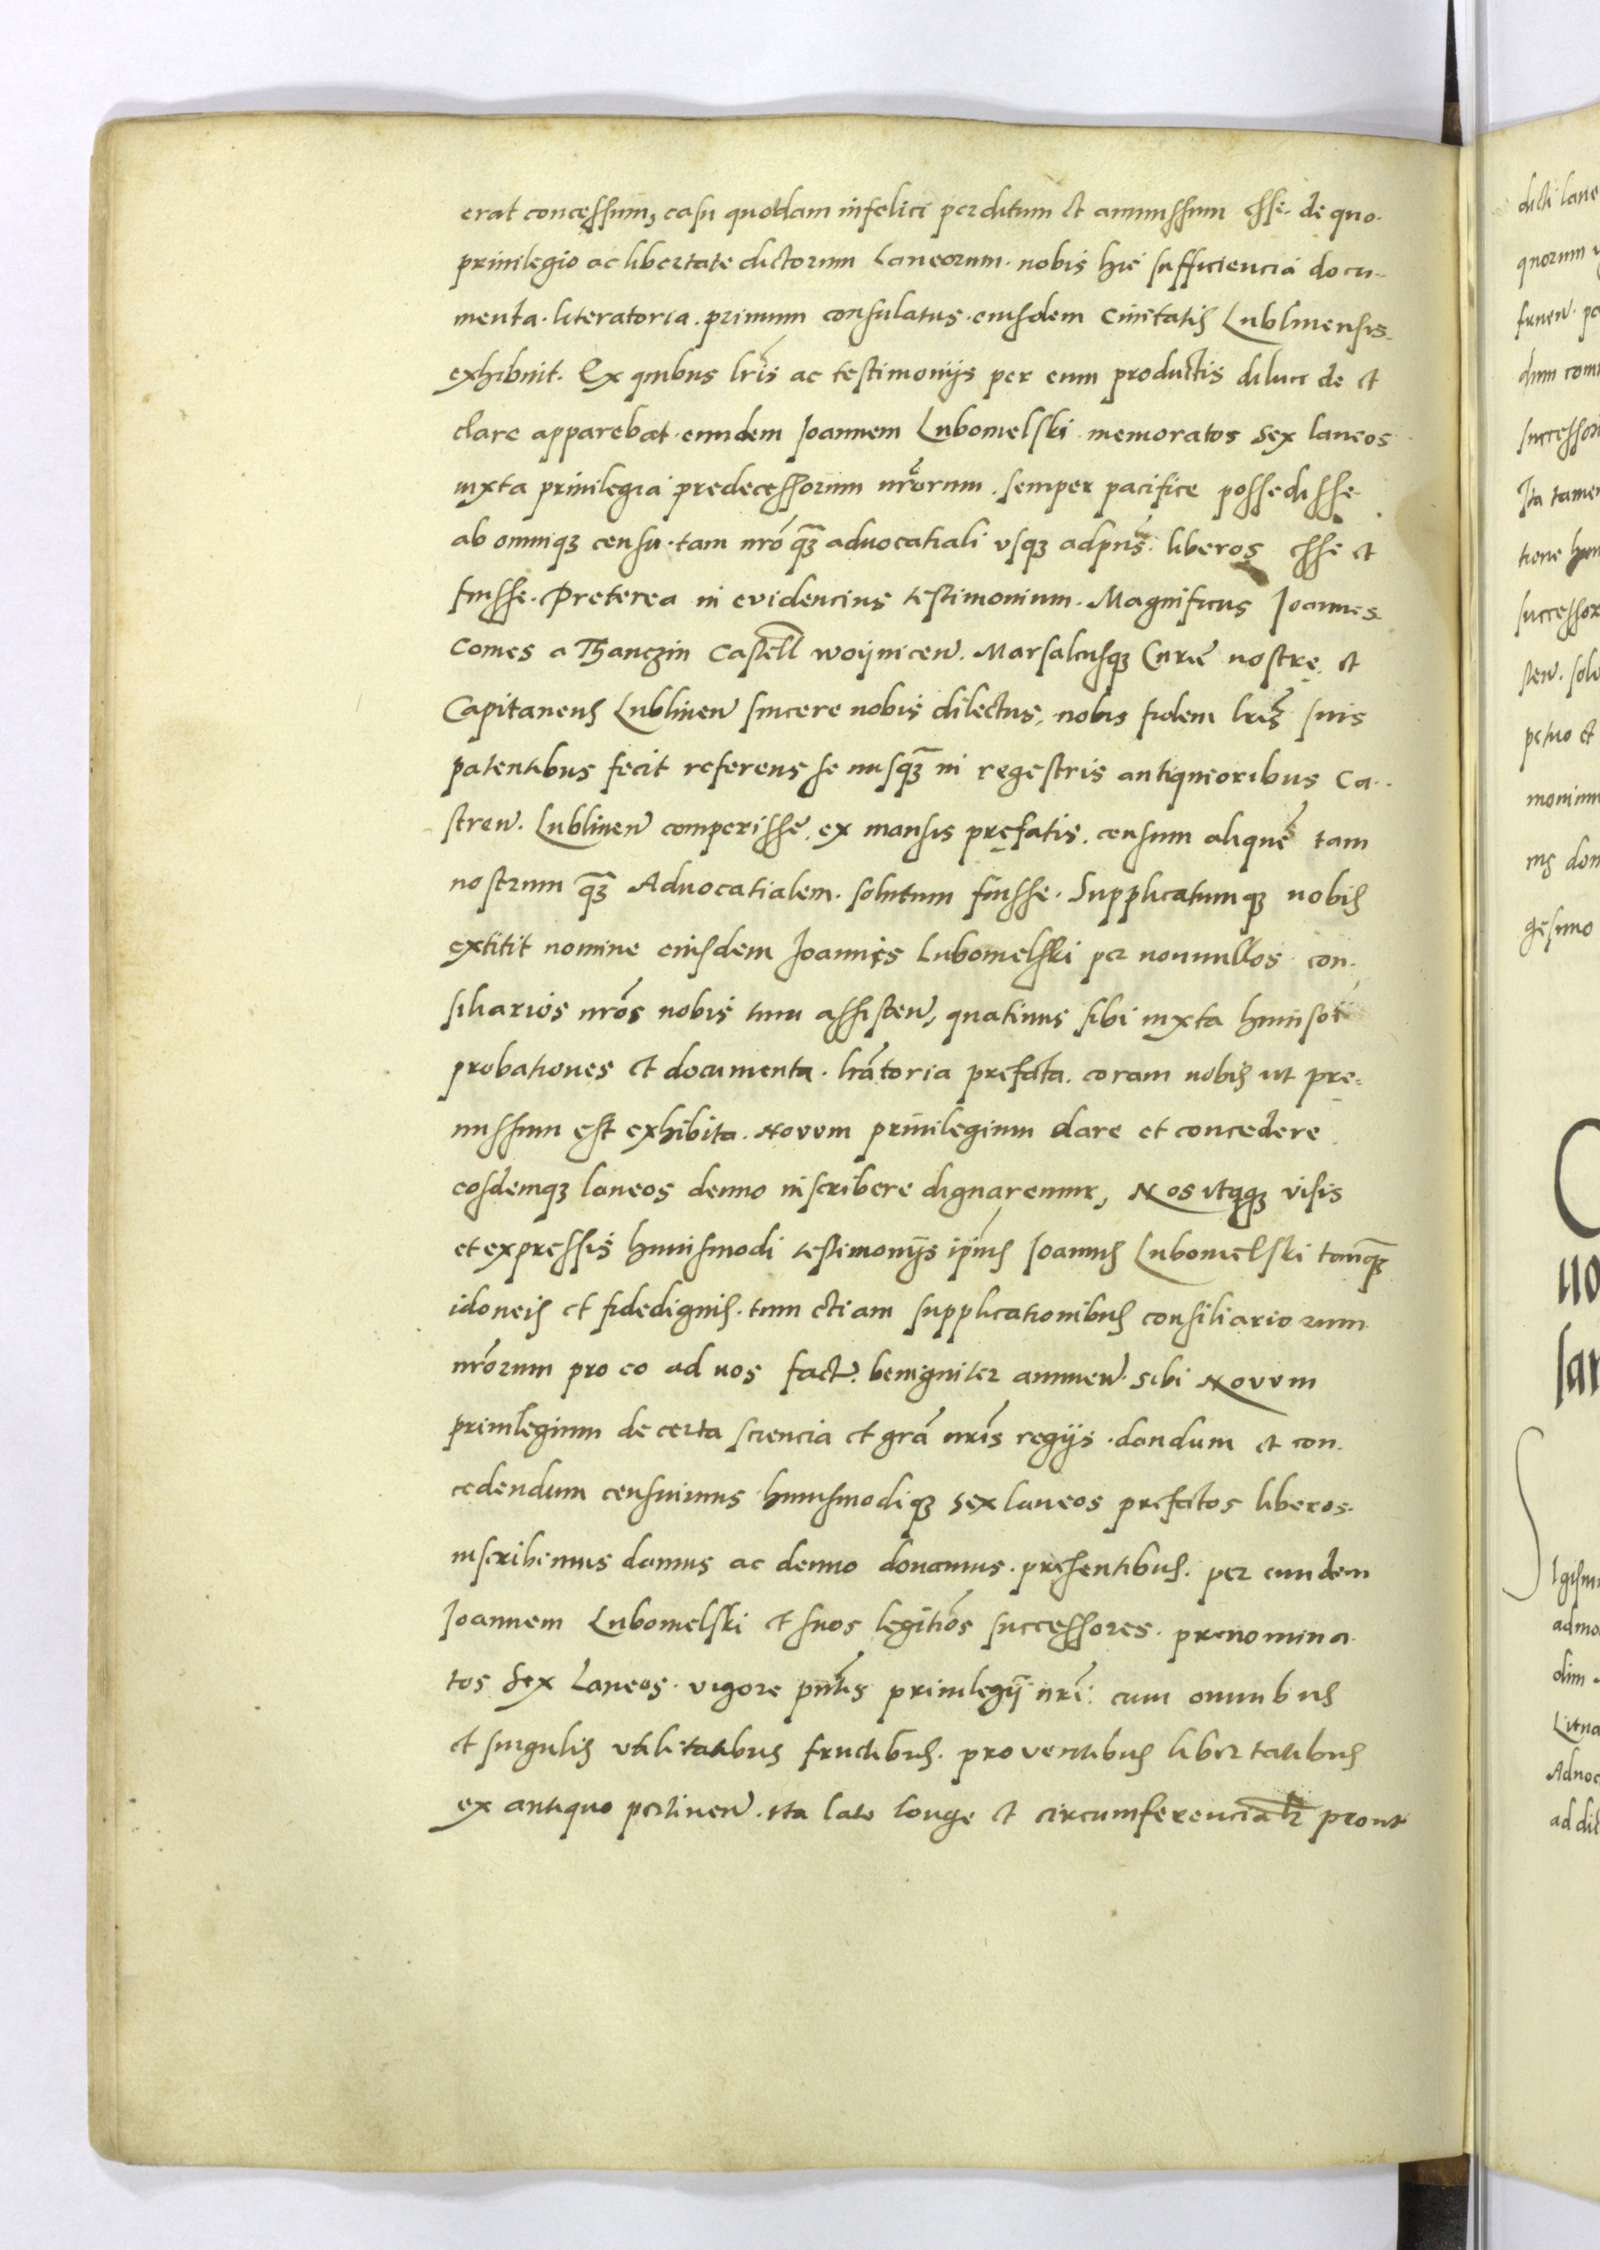 erat concessum, casu quodam infelici perditum et amissum esse. de quo.
privilegio ac libertate dictorum Laneorum. nobis hic sufficiencia docu-
menta. literatoria. primum consulatus. eiusdem Civitatis Lublinensis.
exhibuit. Ex quibus lris ac testimonijs per eum productis diluci de et
clare apparebat. eundem Joannem Lubomelski. memoratos Sex laneos
iuxta privilegia predecessorum nrorum. semper pacifice possedisse
ab omniqz censu. tam nro qz advocatiali usqz ad pns. liberos esse et
fuisse. Preterea in evidencius testimonium. Magnificus Joannes
Comes a Thanczin Castell woijnicen. Marsalcusqz Curie nostre. et
Capitaneus Lublinen sincere nobis dilectus, nobis fidem lris suis
patentibus fecit referens se nusqz in regestris antiquioribus Ca-
stren. Lublinen comperisse, ex mansis prefatis. censum aliquem tam
nostrum qz Advocatialem. solutum fuisse. Supplicatumqz nobis
extitit nomine eiusdem Joannis Lubomelski per nonnullos con-
siliarios nros nobis tunc assisten, quatinus sibi iuxta huiusmoi
probationes et documenta. lratoria prefata. coram nobis ut pre-
missum est exhibita. Novum privilegium dare et concedere
eosdemqz laneos denuo inscribere dignaremur, Nos itaqz visis
et expressis huiusmodi testimonijs ipius Joannis Lubomelski tanqz
idoneis et fidedignis. tum etiam supplicationibus consiliario rum
nrorum pro eo ad nos fact. benigniter annuen. sibi Novum
privilegium de certa sciencia et gra nris regijs. dandum et con-
cedendum censuimus huiusmodiqz sex laneos prefatos liberos.
inscribemus damus ac denuo donamus. presentibus. per eundem
Joannem Lubomelski et suos legitios successores. prenomina-
tos Sex Laneos. vigore pntis privilegij nri. cum omnibus
et singulis utilitatibus fructibus. proventibus libertatibus
ex antiquo pertinen. ita late longe et circumferencialr prout
dicti lane
quorum
fruen. pe
dum com
successori
Ita tamen
tione hui
successor
sten. solu
petuo et
monium
gesimo
no
Litua
Advoc